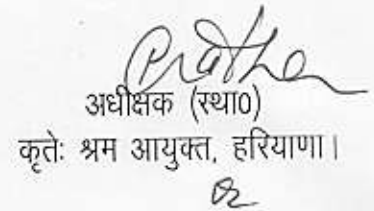 अधीक्षक (स्था0)
कृतेः श्रम आयुक्त, हरियाणा।